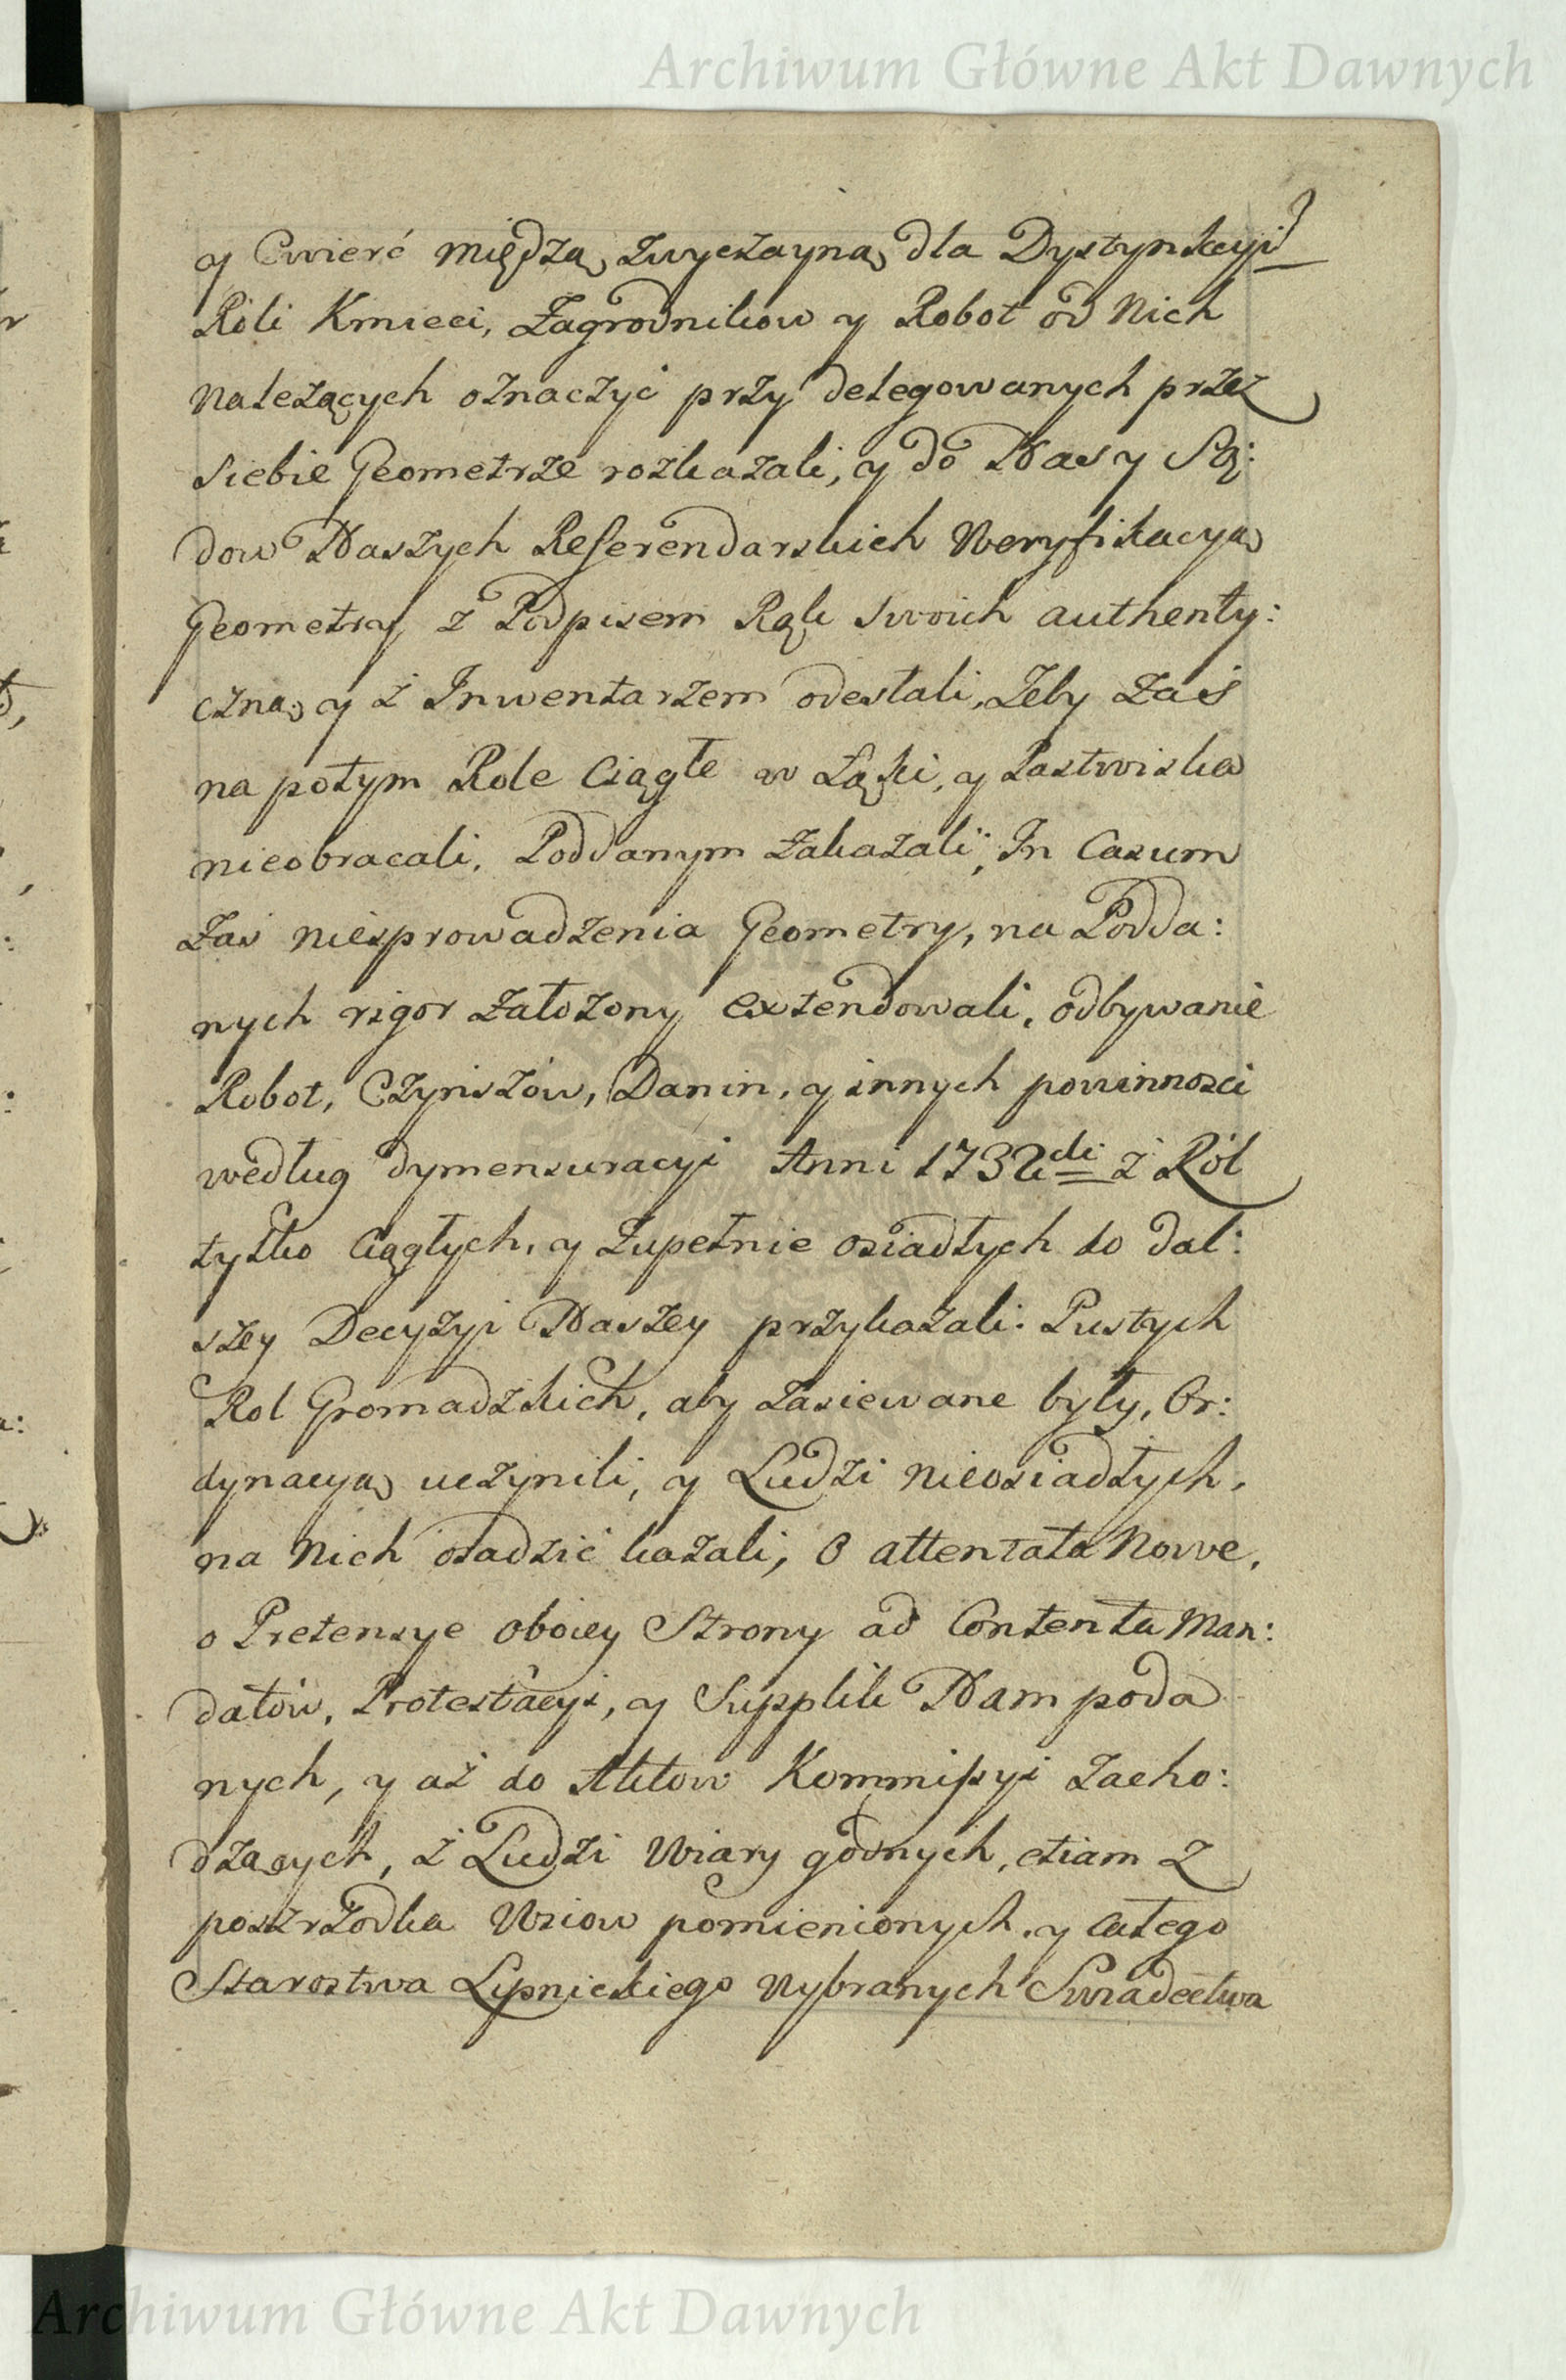 Archiwum Główne Akt Dawnych
y Cwierć miedzą zwyczayną dla Dystynkcyi
Roli Kmieci, Zagrodnikow y Robot od Nich
Należących oznaczyć przy delegowanych przez
siebie Geometrze rozkazali, y do Nas y Są:
dow Naszych Referendarskich Weryfikacyą
Geometry z Podpisem Rąk swoich authenty:
czną y z Inwentarzem odesłali, Zeby zaś
na potym Role Ciągłe w Łąki, y Pastwiska
nieobracali, Poddanym zakazali, In Casum
zas niesprowadzenia Geometry, na Podda:
nych rigor założony extendowali, odbywanie
Robot, Czynszów, Danin, y innych powinnosci
według dymensuracyi Anni 1732di z Ról
tylko ciągłych, y zupełnie osiadłych do dal:
szey Decyzyi Naszey przykazali: Pustych
Rol Gromadzkich, aby zasiewane były, Or:
dynacyą uczynili, y Ludzi nieosiadłych,
na Nich osadzić kazali, O attentata Nowe,
o Pretensye oboiey Strony ad Contenta Man:
datów, Protestacyi, y Supplik Nam poda
nych, y aż do Aktow Kommissyi zacho:
dzących, z Ludzi Wiary godnych, etiam z
poszrzodka Wsiow pomienionych, y całego
Starostwa Lipnickiego Wybranych Swiadectwa
Archiwum Główne Akt Dawnych